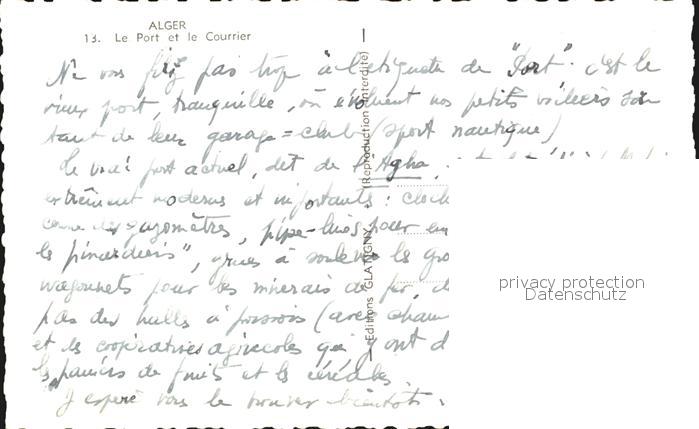 ALGER
13. Le Port et le Courrier
Ne vous fiez pas trop à l'étiquette de "Port". c'est le
vieux port, tranquille, où évoluent nos petits voiliers sor
tant de leur garage = club (sport nautique)
Le vrai port actuel, dit de l'Agha,
extrêment modernes et importants :
comme des gazomètres, pipe-lines pour em
les pinardiers", grues à soulever les gro
wagonnets pour les minerais de fer, d
pas des halls à poissons (avec cham
et les coopératives agricoles qui y ont d
les paniers de fruits et les céréales.
J'espère vous le trouver bientôt.
Editions GLATIGNY (Reproduction interdite)
privacy protection
Datenschutz